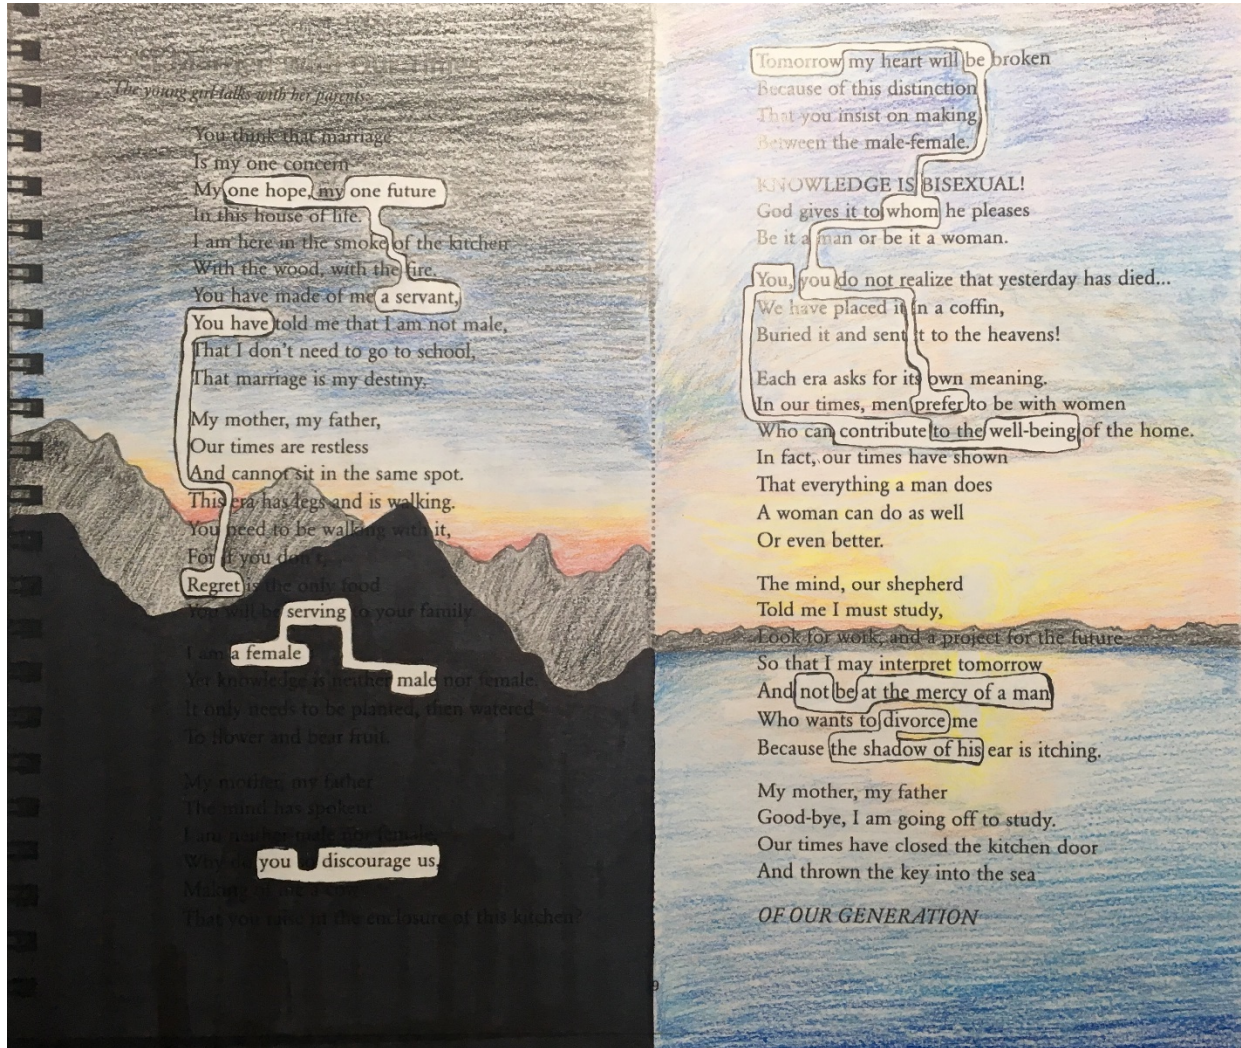 Our Times
The young girl talks with her parents
You think that marriage
Is my one concern
My one hope, my one future
In this house of life.
I am here in the smoke of the kitchen
With the wood, with the fire.
You have made of me a servant,
You have told me that I am not male,
That I don't need to go to school,
That marriage is my destiny.
My mother, my father,
Our times are restless
And cannot sit in the same spot.
This era has legs and is walking.
You need to be walking with it,
For if you don't,
Regret is the only food
You will be serving to your family.
I am a female
Yet knowledge is neither male nor female.
It only needs to be planted, then watered
To flower and bear fruit.
My mother, my father
The mind has spoken
I am neither male nor female.
Why do you discourage us,
Making
That you raise in the enclosure of this kitchen?
Tomorrow my heart will be broken
Because of this distinction
That you insist on making
Between the male-female.
KNOWLEDGE IS BISEXUAL!
God gives it to whom he pleases
Be it a man or be it a woman.
You, you do not realize that yesterday has died...
We have placed it in a coffin,
Buried it and sent it to the heavens!
Each era asks for its own meaning.
In our times, men prefer to be with women
Who can contribute to the well-being of the home.
In fact, our times have shown
That everything a man does
A woman can do as well
Or even better.
The mind, our shepherd
Told me I must study,
Look for work, and a project for the future
So that I may interpret tomorrow
And not be at the mercy of a man
Who wants to divorce me
Because the shadow of his ear is itching.
My mother, my father
Good-bye, I am going off to study.
Our times have closed the kitchen door
And thrown the key into the sea
OF OUR GENERATION
9